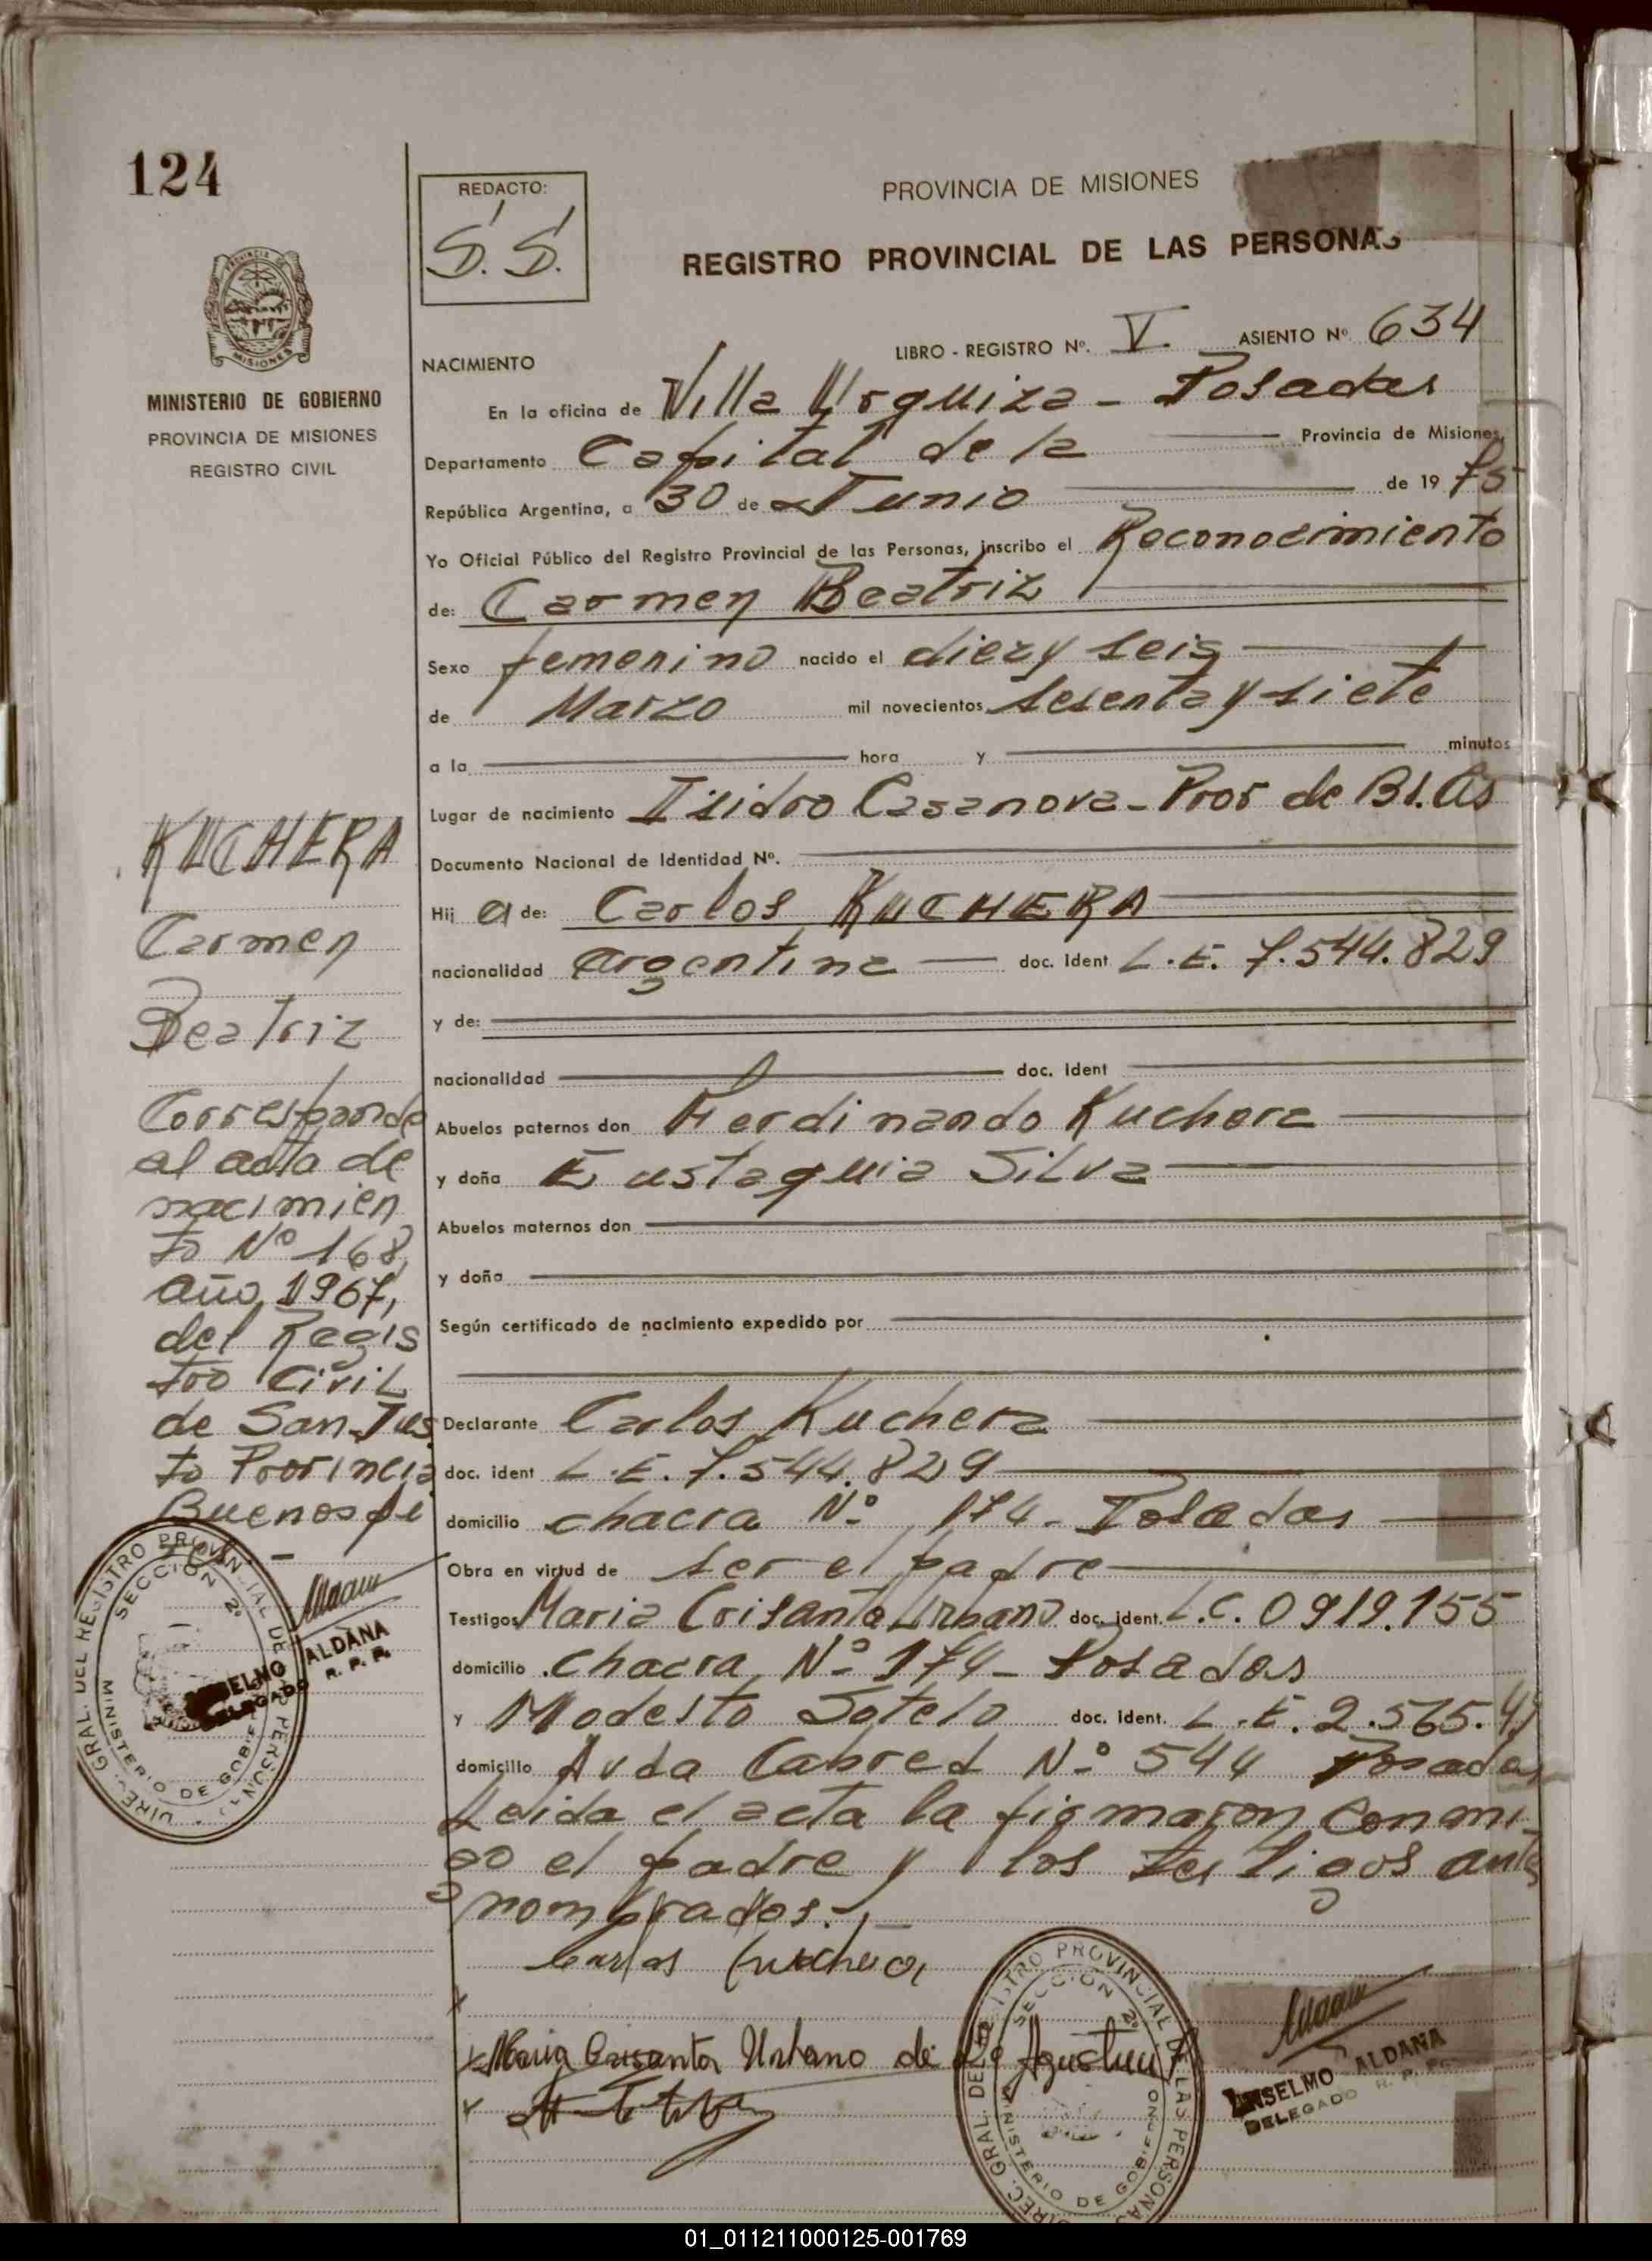 124
REDACTO:
S. S.
PROVINCIA DE MISIONES
REGISTRO PROVINCIAL DE LAS PERSONAS
MINISTERIO DE GOBIERNO
PROVINCIA DE MISIONES
REGISTRO CIVIL
NACIMIENTO
LIBRO - REGISTRO Nº. V. ASIENTO Nº. 634
En la oficina de Villa Urquiza - Posadas
Departamento Capital de la Provincia de Misiones,
República Argentina, a 30 de Junio de 19 75
Yo Oficial Público del Registro Provincial de las Personas, inscribo el Reconocimiento
de: Carmen Beatriz
Sexo femenino nacido el diez y seis
de Marzo mil novecientos sesenta y siete
a la hora y minutos
Lugar de nacimiento Isidro Casanova - Prov de Bs. As
Documento Nacional de Identidad Nº.
Hij a de: Carlos KUCHERA
nacionalidad argentina doc. Ident L. E. 7.544.829
y de:
nacionalidad doc. Ident
Abuelos paternos don Ferdinando Kuchera
y doña Eustaquia Silva
Abuelos maternos don
y doña
Según certificado de nacimiento expedido por
Declarante Carlos Kuchera
doc. ident L. E. 7.544.829
domicilio chacra Nº 174 - Posadas
Obra en virtud de ser el padre
Testigos Maria Crisanta Urbano doc. ident. L.C. 0919.155
domicilio chacra Nº 174 - Posadas
y Modesto Sotelo doc. ident. L. E. 2.565.
domicilio Avda Cabred Nº 544 Posadas
Leida el acta la firmaron conmi
go el padre y los testigos ante
nombrados.-
Carlos Kuchera
Maria Crisanta Urbano de Agustini
KUCHERA
Carmen
Beatriz
Corresponde
al acta de
nacimien
to Nº 168,
año 1967,
del Regis
tro Civil
de San Jus
to Provincia
Buenos Ai
DIREC. GRAL. DEL REGISTRO PROVINCIAL DE LAS PERSONAS
SECCION 2º
MINISTERIO DE GOBIERNO
ANSELMO ALDANA
DELEGADO R. P. P.
DIREC. GRAL. DEL REGISTRO PROVINCIAL DE LAS PERSONAS
SECCION 2º
MINISTERIO DE GOBIERNO
ANSELMO ALDANA
DELEGADO R. P. P.
01_011211000125-001769